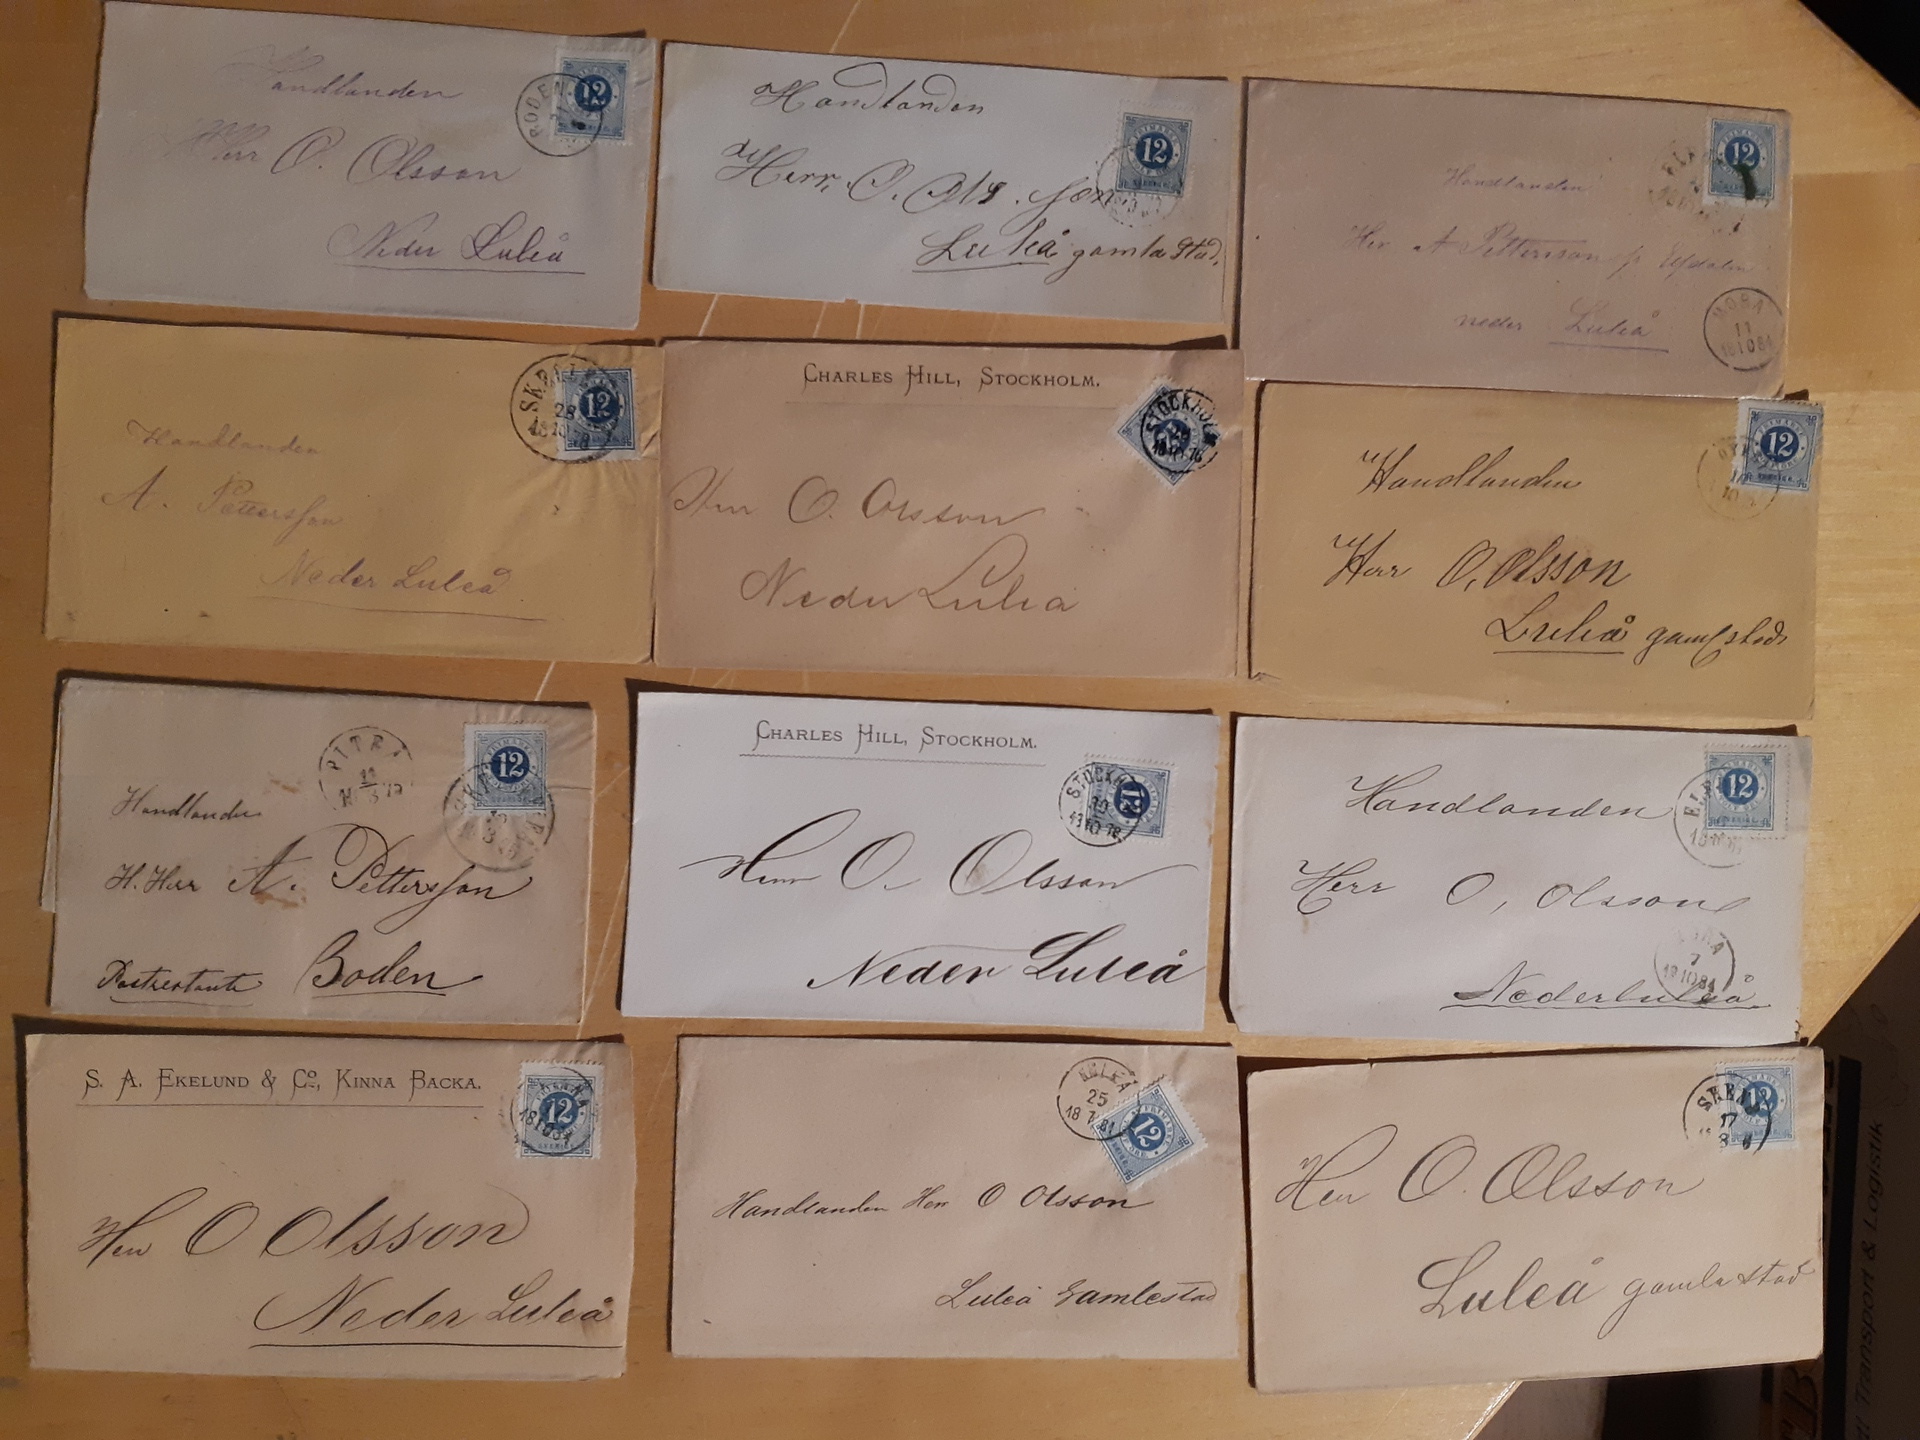 Handlanden
Herr O. Olsson
Neder Luleå
BODEN
12
Handlanden
Herr. O. Ols . son
Luleå gamla Stad,
12
Handlanden
Herr A Pettersson
neder Luleå
MORA
11
1881
12
Handlanden
A. Pettersson
Neder Luleå
28
1878
12
CHARLES HILL, STOCKHOLM.
Herr O. Olsson
Neder Luleå
STOCKHOLM
12
Handlanden
Herr O, Olsson
Luleå gamlstad
12
Handlanden
H. Herr A. Pettersson
Postrestante Boden
PITEÅ
12
CHARLES HILL, STOCKHOLM.
Herr O. Olsson
Neder Luleå
STOCKH
12
Handlanden
Herr O, Olsson
Nederluleå
7
12
S. A. EKELUND & Co, KINNA BACKA.
Herr O Olsson
Neder Luleå
12
Handlanden Herr O Olsson
Luleå Gamlestad
25
18 7 81
12
Herr O. Olsson
Luleå gamla stad
17
12
Transport & Logistik